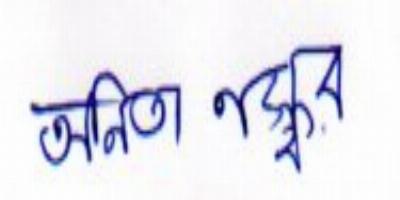 অনিতা নস্কর